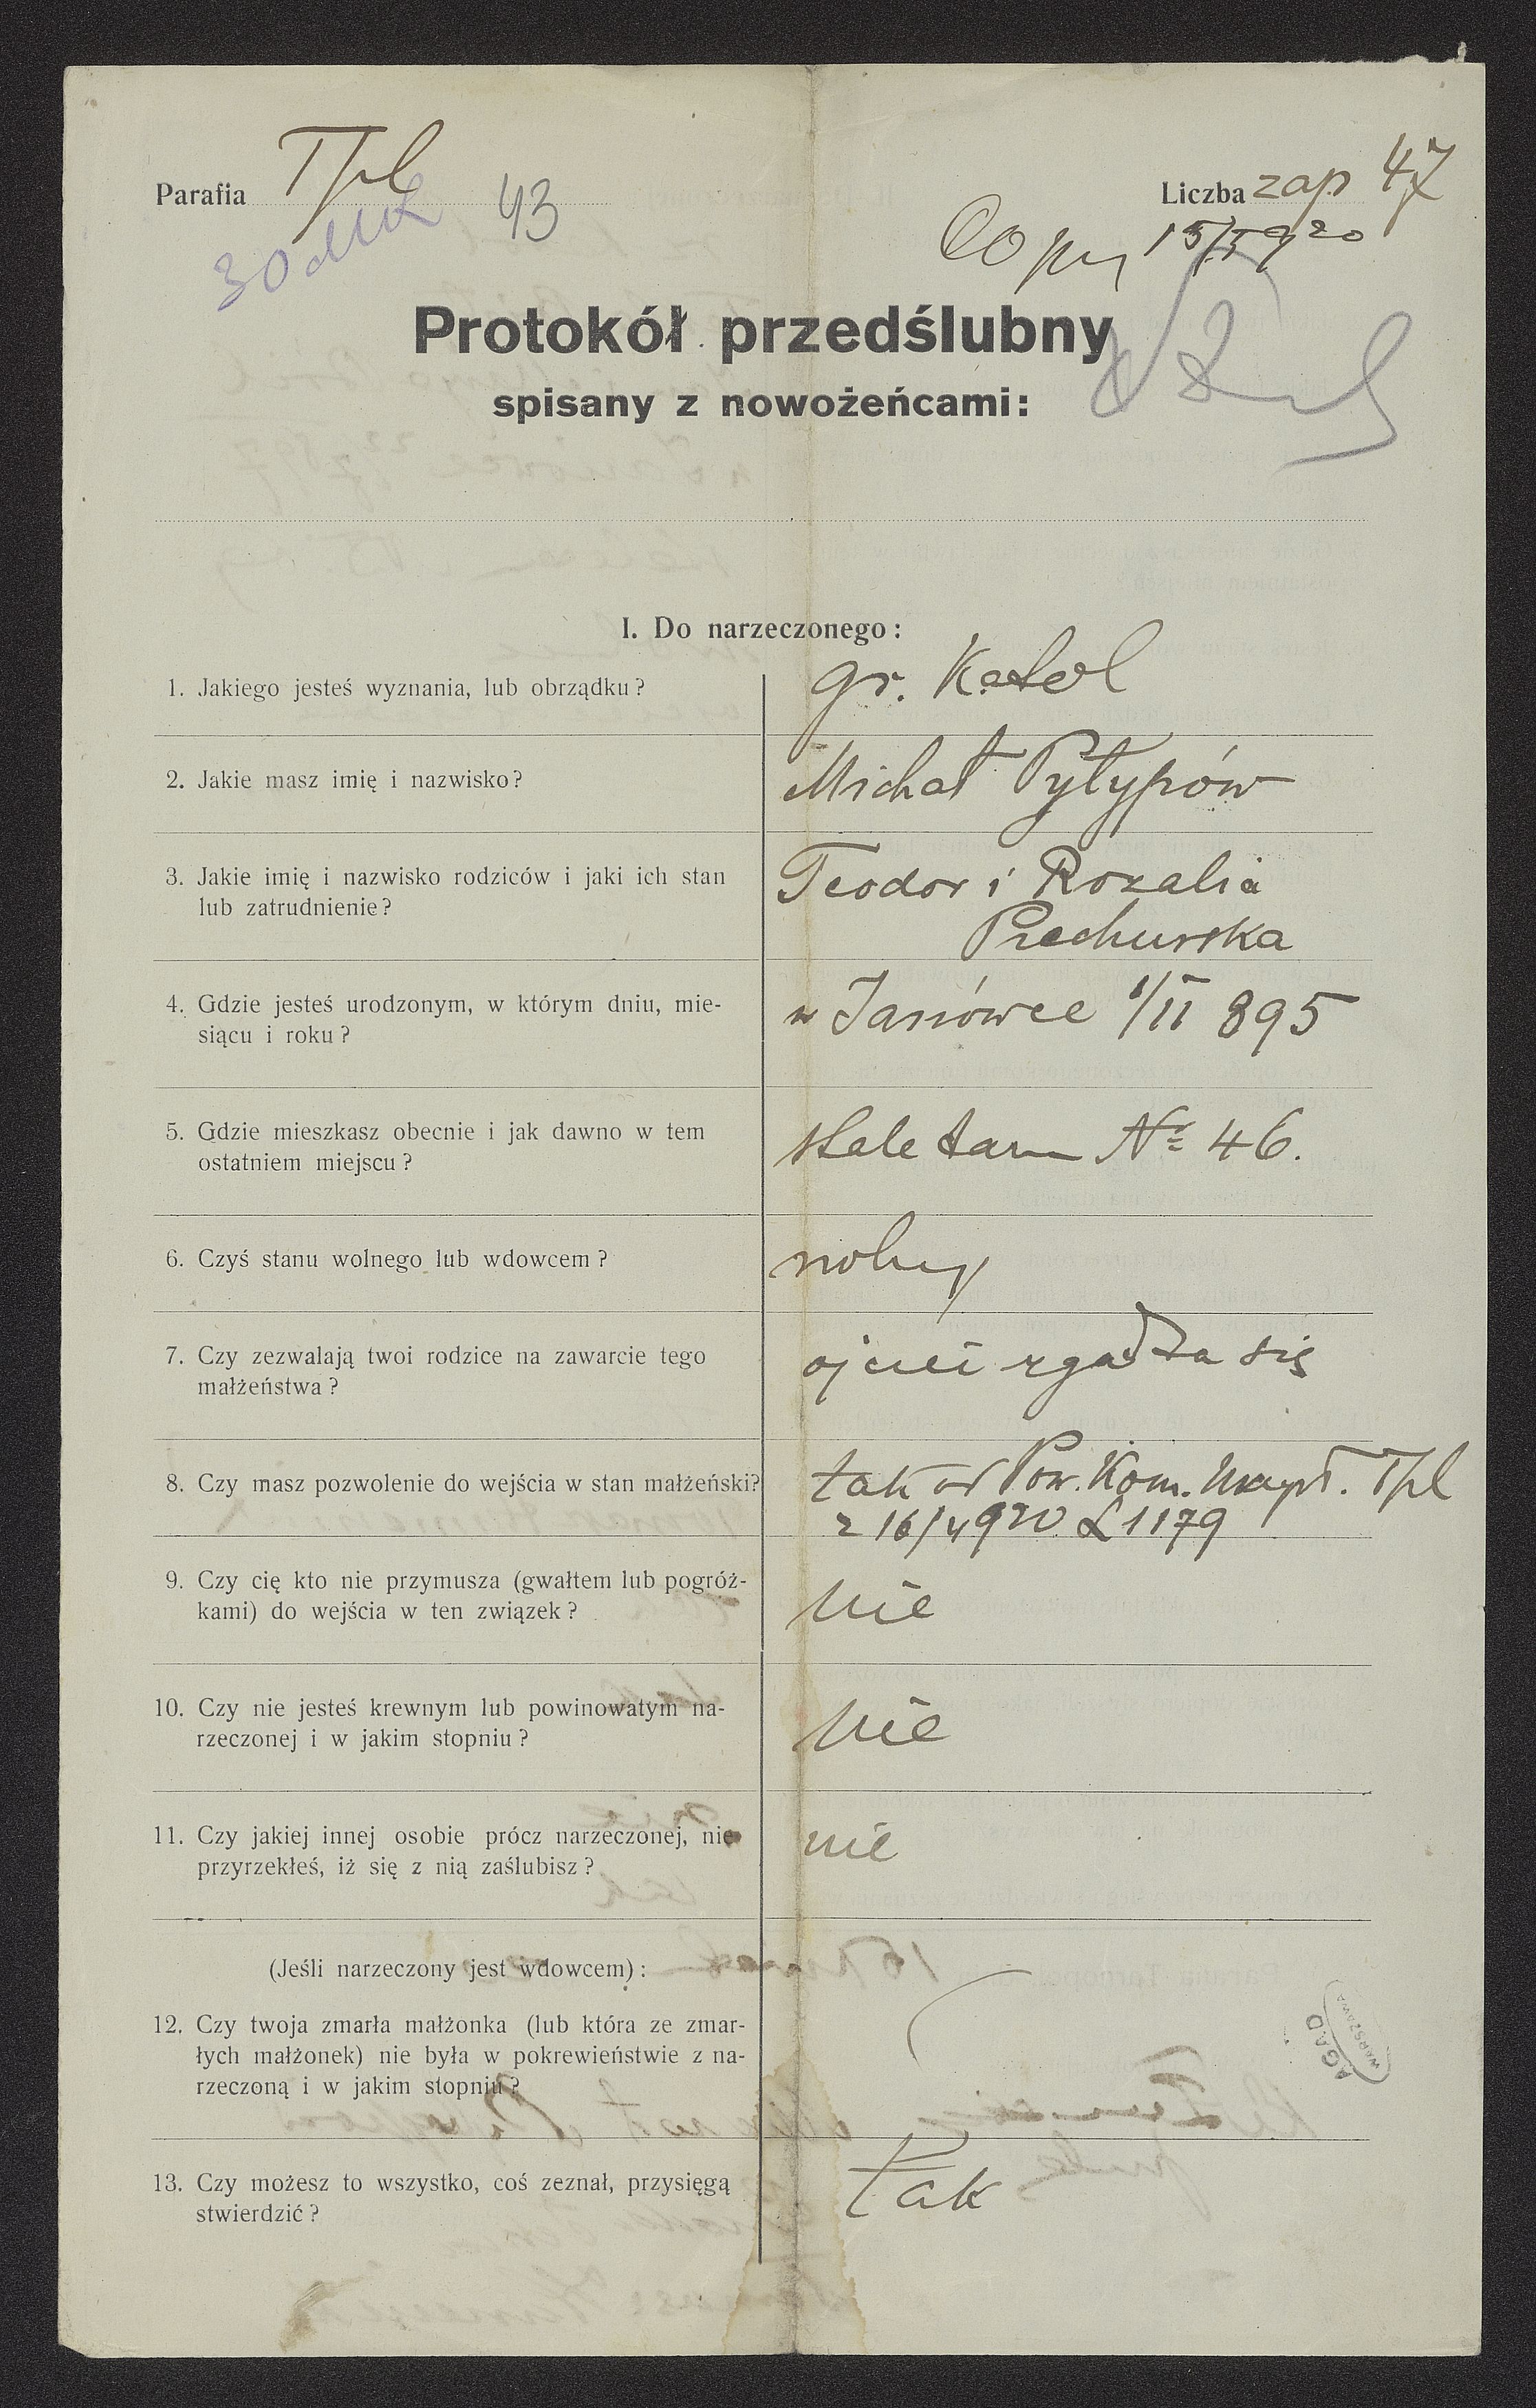 Parafia Tpl 43
Liczba zap 47
15/5 920
30
Protokół przedślubny
spisany z nowożeńcami:
I. Do narzeczonego:
1. Jakiego jesteś wyznania, lub obrządku?
gr. Katol
2. Jakie masz imię i nazwisko?
Michał Pyłypów
3. Jakie imię i nazwisko rodziców i jaki ich stan
lub zatrudnienie?
Teodor i Rozalia
Piechurska
4. Gdzie jesteś urodzonym, w którym dniu, mie-
siącu i roku?
w Janówce 1/II 895
5. Gdzie mieszkasz obecnie i jak dawno w tem
ostatniem miejscu?
stale tam Nr 46.
6. Czyś stanu wolnego lub wdowcem?
wolny
7. Czy zezwalają twoi rodzice na zawarcie tego
małżeństwa?
ojciec zgadza się
8. Czy masz pozwolenie do wejścia w stan małżeński?
tak od Pow. Kom. Tpl
z 16/4 920 L 1179
9. Czy cię kto nie przymusza (gwałtem lub pogróż-
kami) do wejścia w ten związek?
nie
10. Czy nie jesteś krewnym lub powinowatym na-
rzeczonej i w jakim stopniu?
nie
11. Czy jakiej innej osobie prócz narzeczonej, nie
przyrzekłeś, iż się z nią zaślubisz?
nie
(Jeśli narzeczony jest wdowcem):
12. Czy twoja zmarła małżonka (lub która ze zmar-
łych małżonek) nie była w pokrewieństwie z na-
rzeczoną i w jakim stopniu?
13. Czy możesz to wszystko, coś zeznał, przysięgą
stwierdzić?
Tak
AGAD
WARSZAWA